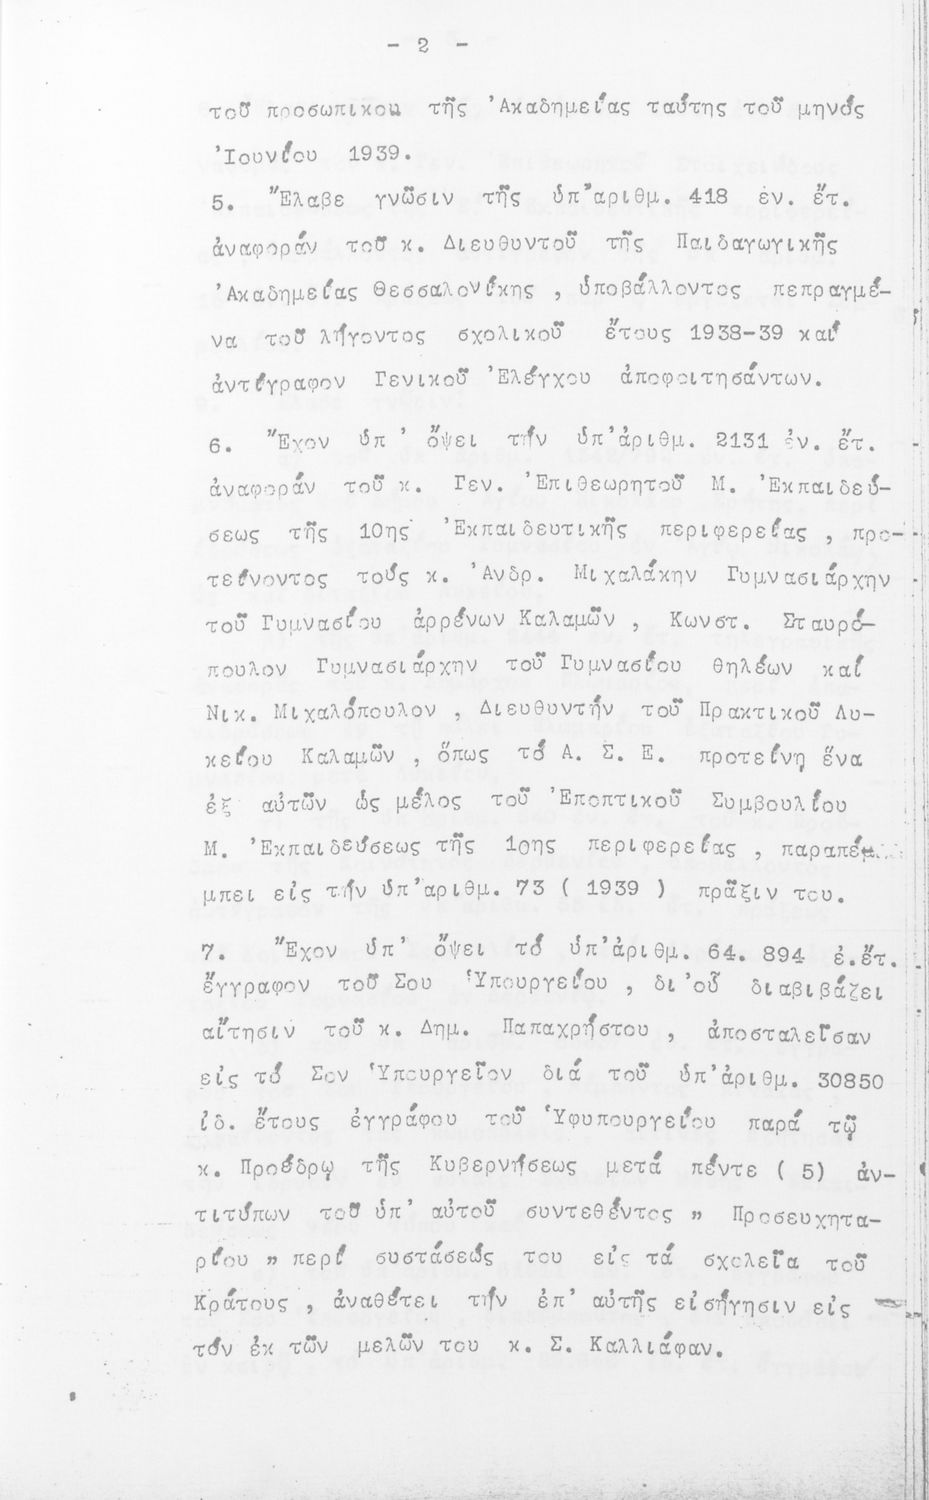 - 2 -
τοῦ προσωπικου τῆς Ἀκαδημείας ταύτης τοῦ μηνός
Ἰουνίου 1939.
5. Ἔλαβε γνῶσιν τῆς ὑπ'ἀριθμ. 418 ἐν. ἔτ.
ἀναφοράν τοῦ κ. Διευθυντοῦ τῆς Παιδαγωγικῆς
Ἀκαδημείας Θεσσαλονίκης , ὑποβάλλοντος πεπραγμέ-
να τοῦ λήγοντος σχολικοῦ ἔτους 1938-39 καί
ἀντίγραφον Γενικοῦ Ἐλέγχου ἀποφοιτησάντων.
6. Ἔχον ὑπ ' ὄψει τήν ὑπ'ἀριθμ. 2131 ἐν. ἔτ.
ἀναφοράν τοῦ κ. Γεν. Ἐπιθεωρητοῦ Μ. Ἐκπαιδεύ-
σεως τῆς 10ης Ἐκπαιδευτικῆς περιφερείας , προ-
τείνοντος τούς κ. Ἀνδρ. Μιχαλάκην Γυμνασιάρχην
τοῦ Γυμνασίου ἀρρένων Καλαμῶν , Κωνστ. Σταυρό-
πουλον Γυμνασιάρχην τοῦ Γυμνασίου θηλέων καί
Νικ. Μιχαλόπουλον , Διευθυντήν τοῦ Πρακτικοῦ Λυ-
κείου Καλαμῶν , ὅπως τό Α. Σ. Ε. προτείνῃ ἕνα
ἐξ αὐτῶν ὡς μέλος τοῦ Ἐποπτικοῦ Συμβουλίου
Μ. Ἐκπαιδεύσεως τῆς 1ορης περιφερείας , παραπέμ
μπει εἰς τήν ὑπ'ἀριθμ. 73 ( 1939 ) πρᾶξιν του.
7. Ἔχον ὑπ' ὄψει τό ὑπ'ἀριθμ. 64. 894 ἐ.ἔτ.
ἔγγραφον τοῦ Σου Ὑπουργείου , δι'οὗ διαβιβάζει
αἴτησιν τοῦ κ. Δημ. Παπαχρήστου , ἀποσταλεῖσαν
εἰς τό Σον Ὑπουργεῖον διά τοῦ ὑπ'ἀριθμ. 30850
ἰδ. ἔτους ἐγγράφου τοῦ Ὑφυπουργείου παρά τῷ
κ. Προέδρῳ τῆς Κυβερνήσεως μετά πέντε ( 5) ἀν-
τιτύπων τοῦ ὑπ' αὐτοῦ συντεθέντος " Προσευχητα-
ρίου " περί συστάσεώς του εἰς τά σχολεῖα τοῦ
Κράτους , ἀναθέτει τήν ἐπ' αὐτῆς εἰσήγησιν εἰς
τόν ἐκ τῶν μελῶν του κ. Σ. Καλλιάφαν.